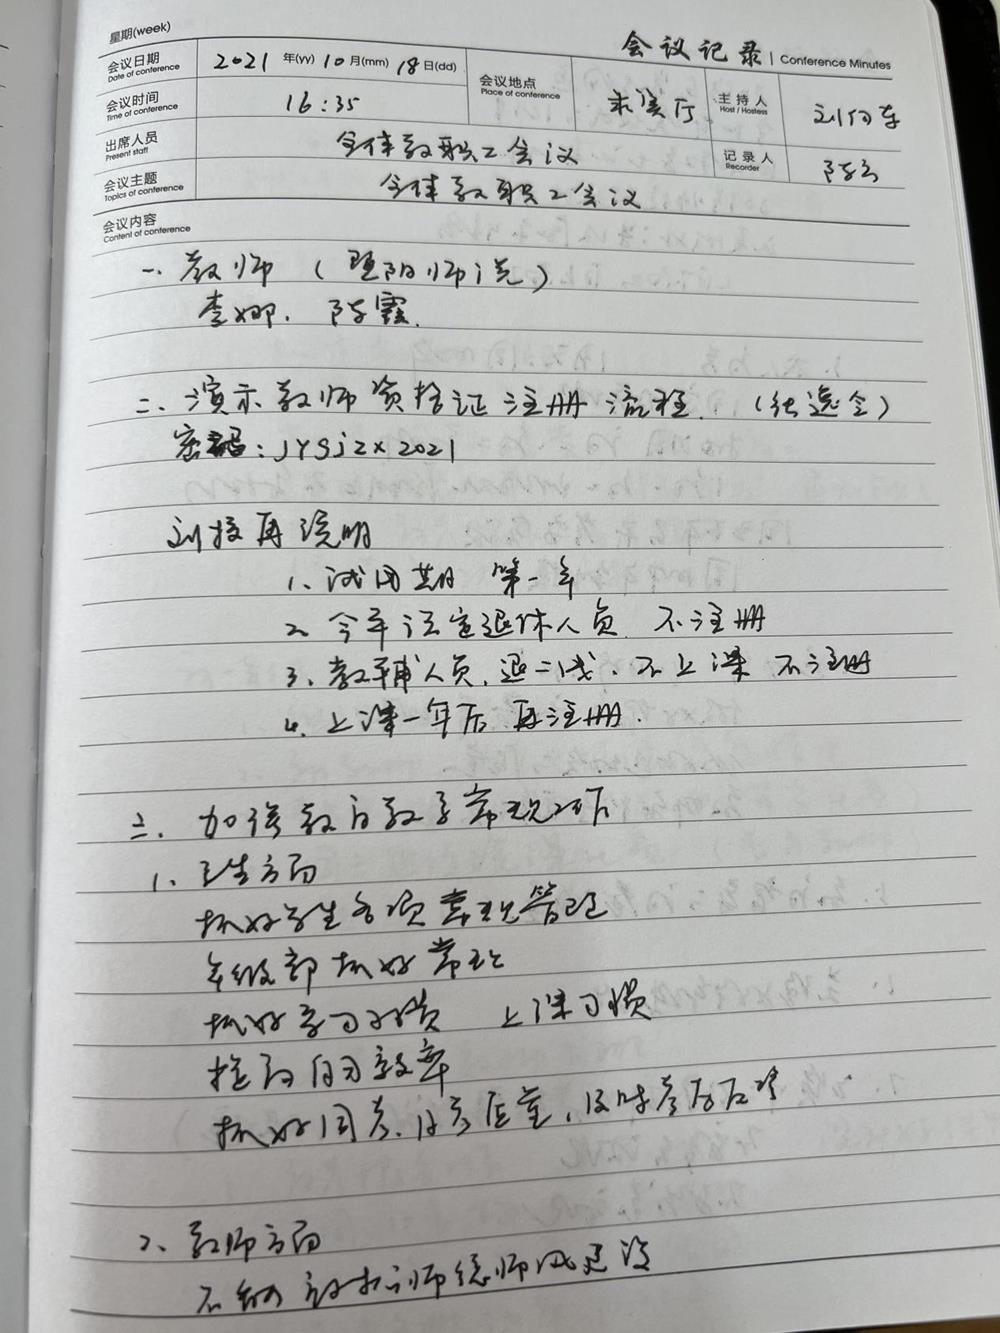 星期(week)
会议记录 | Conference Minutes
会议日期 Date of conference 2021 年(yy) 10 月(mm) 18 日(dd) 会议地点 Place of conference 主持人 Host / Hostess
会议时间 Time of conference 16:35
出席人员 Present staff 全体教职工会议 记录人 Recorder
会议主题 Topics of conference 全体教职工会议
会议内容 Content of conference
一、教师(暨阳师说)
李娜、陈霞
二、演示教师资格证注册流程.
密码:JYSjzx2021
刘校再说明
1、试用期 第一年
2、今年法定退休人员 不注册
3、教辅人员、退二线、不上课 不注册
4、上课一年后 再注册.
三、加强教育教学常规工作
1、学生方面
抓好学生各项常规管理
年级部抓好常规
抓好学习习惯 上课习惯
提高自习效率
抓好周考、月考质量,及时考后反思
2、教师方面
不断 师德师风建设